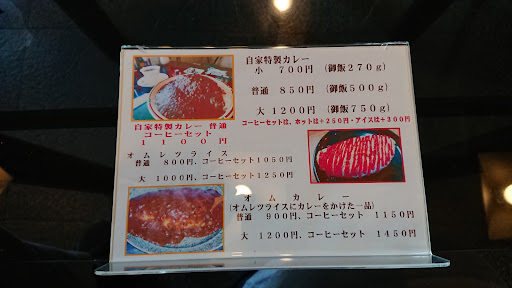 自家特製カレー
小 700円 (御飯270g)
普通 850円 (御飯500g)
大 1200円 (御飯750g)
コーヒーセットは、ホットは+250円・アイスは+300円
自家特製カレー 普通
コーヒーセット
1100円
オムレツライス
普通 800円、コーヒーセット1050円
大 1000円、コーヒーセット1250円
オムカレー
(オムレツライスにカレーをかけた一品)
普通 900円、コーヒーセット 1150円
大 1200円、コーヒーセット 1450円